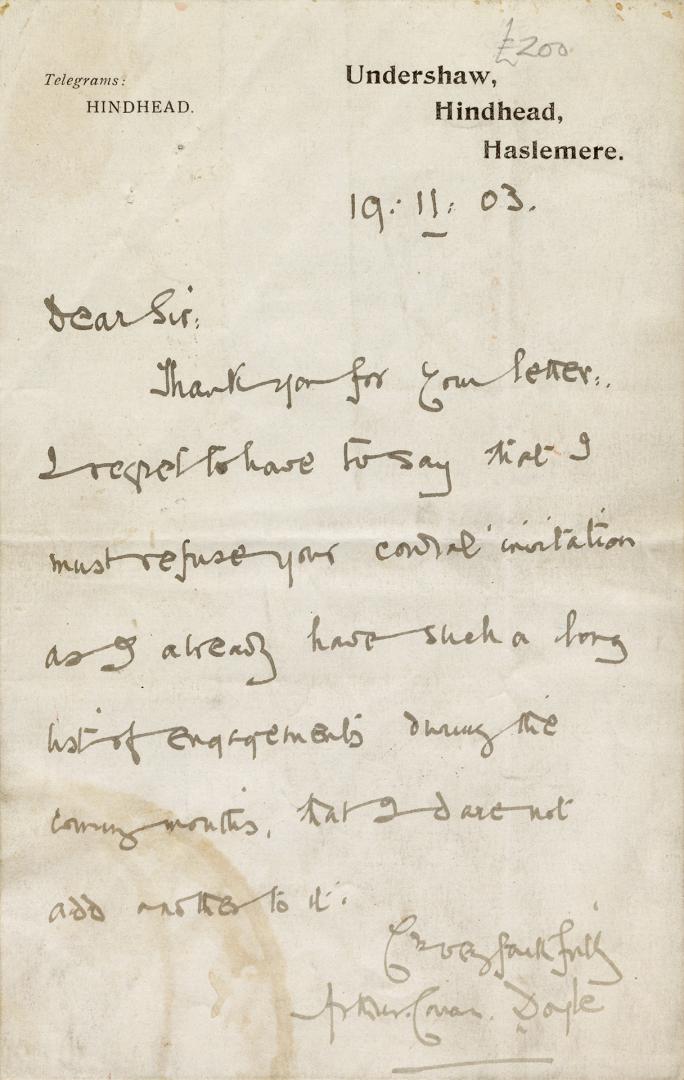 £200
Telegrams:
HINDHEAD.
Undershaw,
Hindhead,
Haslemere.
19. 11. 03.
Dear Sir:
Thank you for your letter.
I regret to have to say that I
must refuse your cordial invitation
as I already have such a long
list of engagements during the
coming months, that I dare not
add another to it.
Yours very faithfully
Arthur Conan Doyle